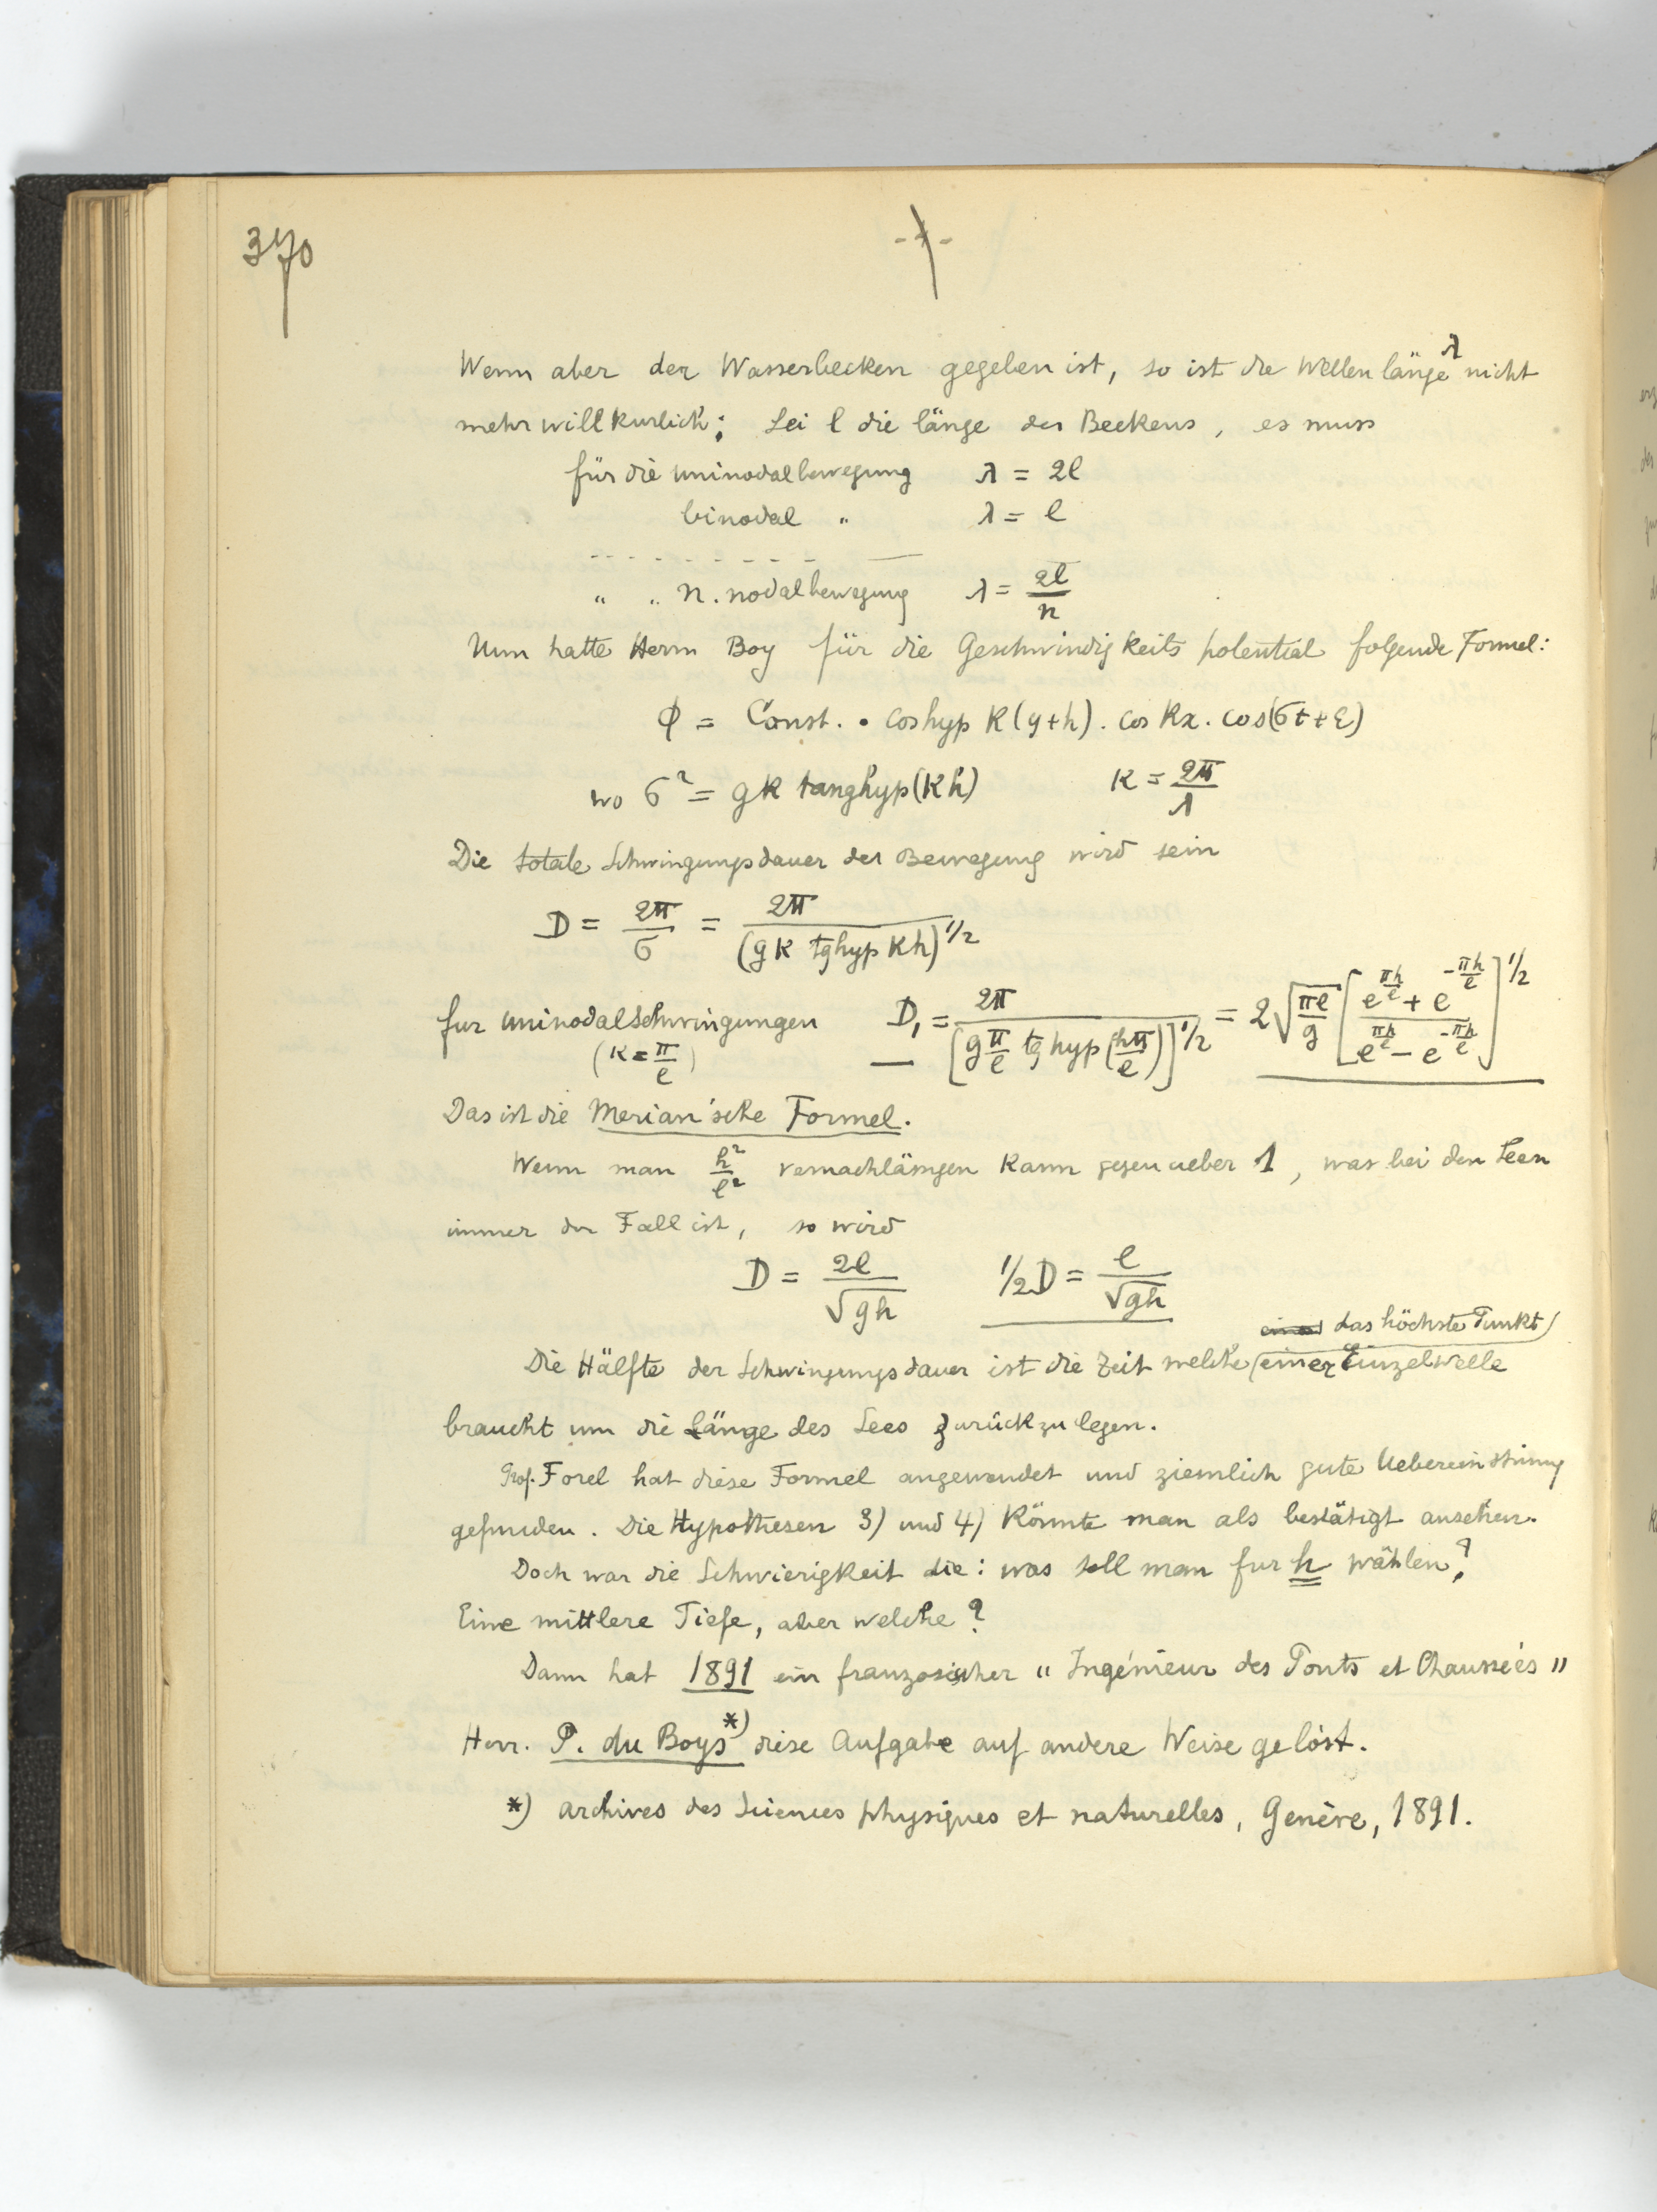 370
-7-
Wenn aber der Wasserbecken gegeben ist, so ist die Wellenlänge λ nicht
mehr willkurlich; Sei l die länge des Beckens, es muss
für die uninodalbewegung λ = 2l
binodal " λ = l
- - - - - - - - - —
" " n. nodalbewegung λ = 2l/n
Nun hatte Herrn Boy für die Geschwindigkeits potential folgende Formel:
φ = Const. • coshyp k(y+h) . cos kx . cos(σt+ε)
wo σ² = gk tanghyp(kh) k = 2π/λ
Die totale Schwingungsdauer der Bewegung wird sein
D = 2π/σ = 2π/(gk tghyp kh)^1/2
fur uninodalschwingungen D₁ = 2π/[g π/l tghyp(hπ/l)]^1/2 = 2√(πl/g) [(e^(πh/l) + e^(-πh/l))/(e^(πh/l) - e^(-πh/l))]^1/2
(k = π/l)
Das ist die Merian'sche Formel.
Wenn man h²/l² vernachlässigen kann gegenueber 1, was bei den Seen
immer der Fall ist, so wird
D = 2l/√gh 1/2 D = l/√gh
das höchste Punkt
Die Hälfte der Schwingungsdauer ist die Zeit welche einer Einzelwelle
braucht um die Länge des Sees zurückzulegen.
Prof. Forel hat diese Formel angewendet und ziemlich gute Uebereinstimmg
gefunden. Die Hypothesen 3) und 4) könnte man als bestätigt ansehen.
Doch war die Schwierigkeit die: was soll man fur h wählen?
Eine mittlere Tiefe, aber welche?
Dann hat 1891 ein franzosischer "Ingénieur des Ponts et Chaussées"
Herr. P. du Boys *) diese Aufgabe auf andere Weise gelöst.
*) Archives des Sciences physiques et naturelles, Genève, 1891.